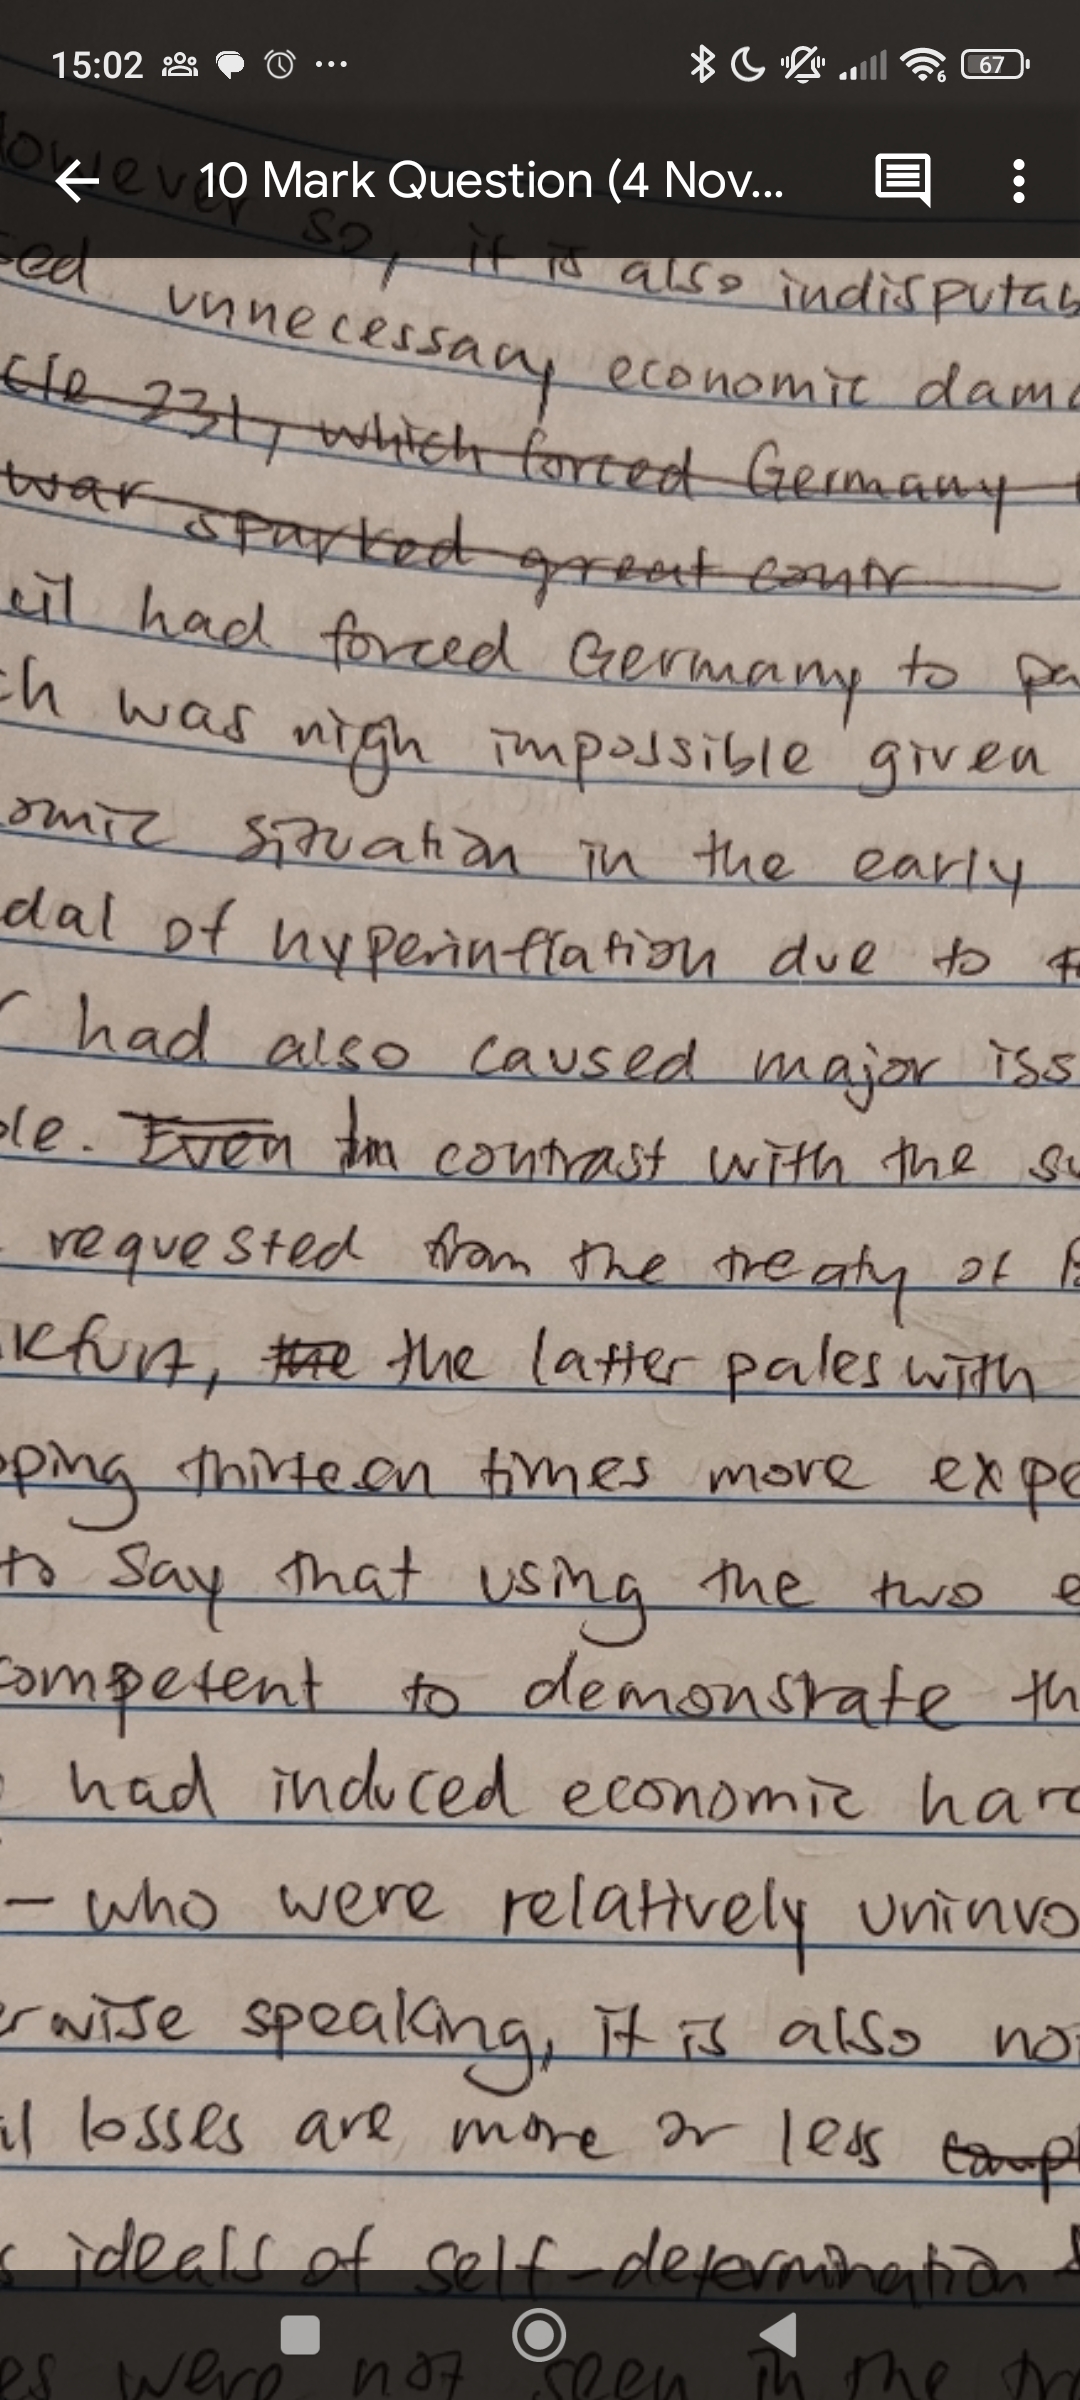 15:02
67
10 Mark Question (4 Nov...
owever so, it is also indisputab
sed unnecessary economic dama
cle 231, which forced Germany
war sparked great contr
cil had forced Germany to pa
ch was nigh impossible given
omic situation in the early
dal of hyperinflation due to
r had also caused major iss
ple. Even In contrast with the su
requested from the treaty of
kfurt, the the latter pales with
pping thirteen times more expe
to say that using the two e
competent to demonstrate th
had induced economic hard
- who were relatively uninvo
erwise speaking, it is also no
al losses are more or less compl
s ideals of self-determination
es were not seen in the tr